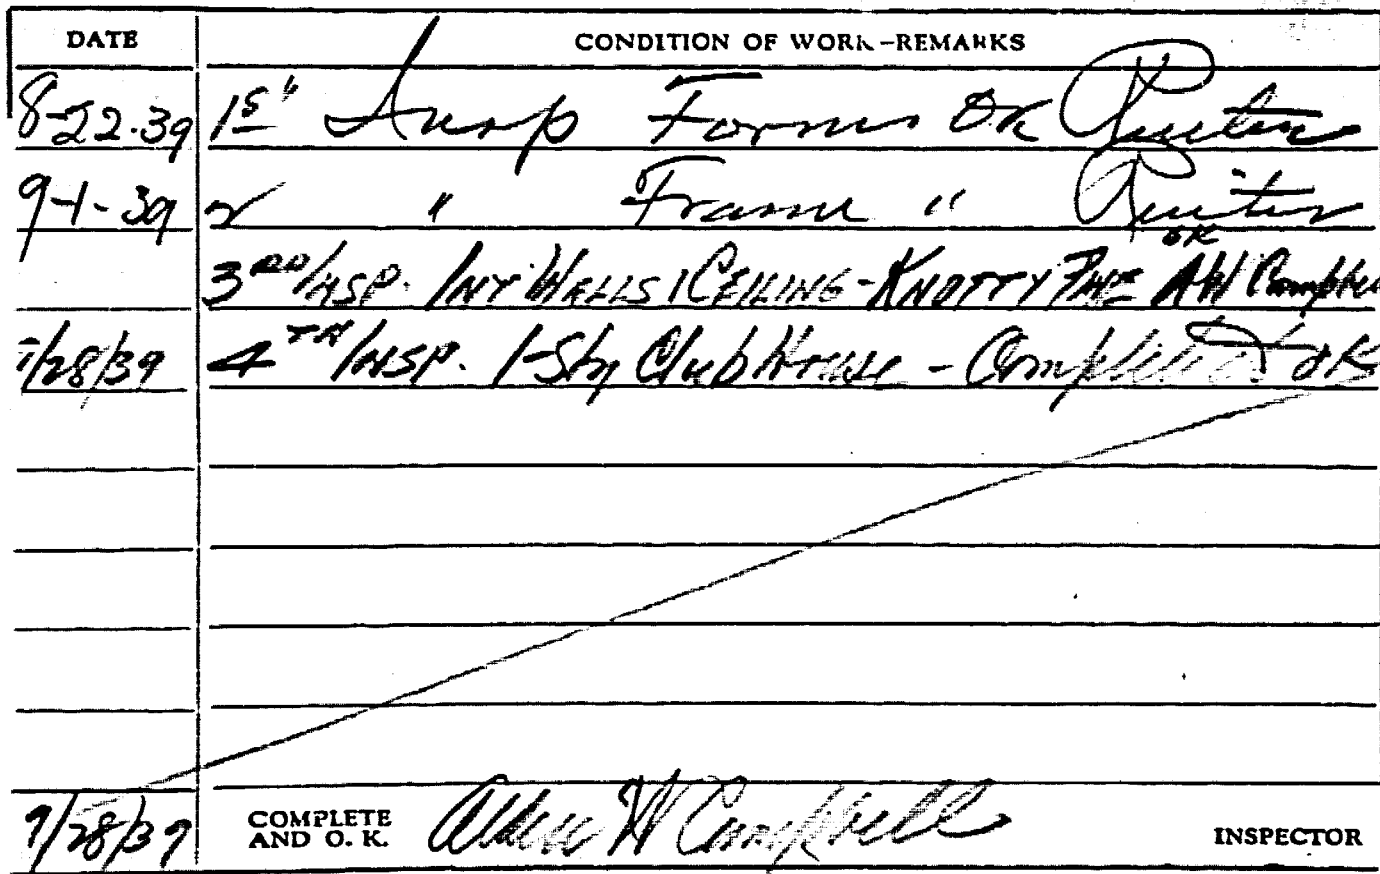 DATE CONDITION OF WORK-REMARKS
8-22-39 1st Insp Forms OK Ruiter
9-1-39 2 " Frame " Ruiter
OK
3RD INSP. INT WALLS & CEILING - KNOTTY PINE AW Campbell
9/28/39 4TH INSP. 1-Sty Club House - Completed OK
9/28/39 COMPLETE AND O. K. Allen W Campbell INSPECTOR